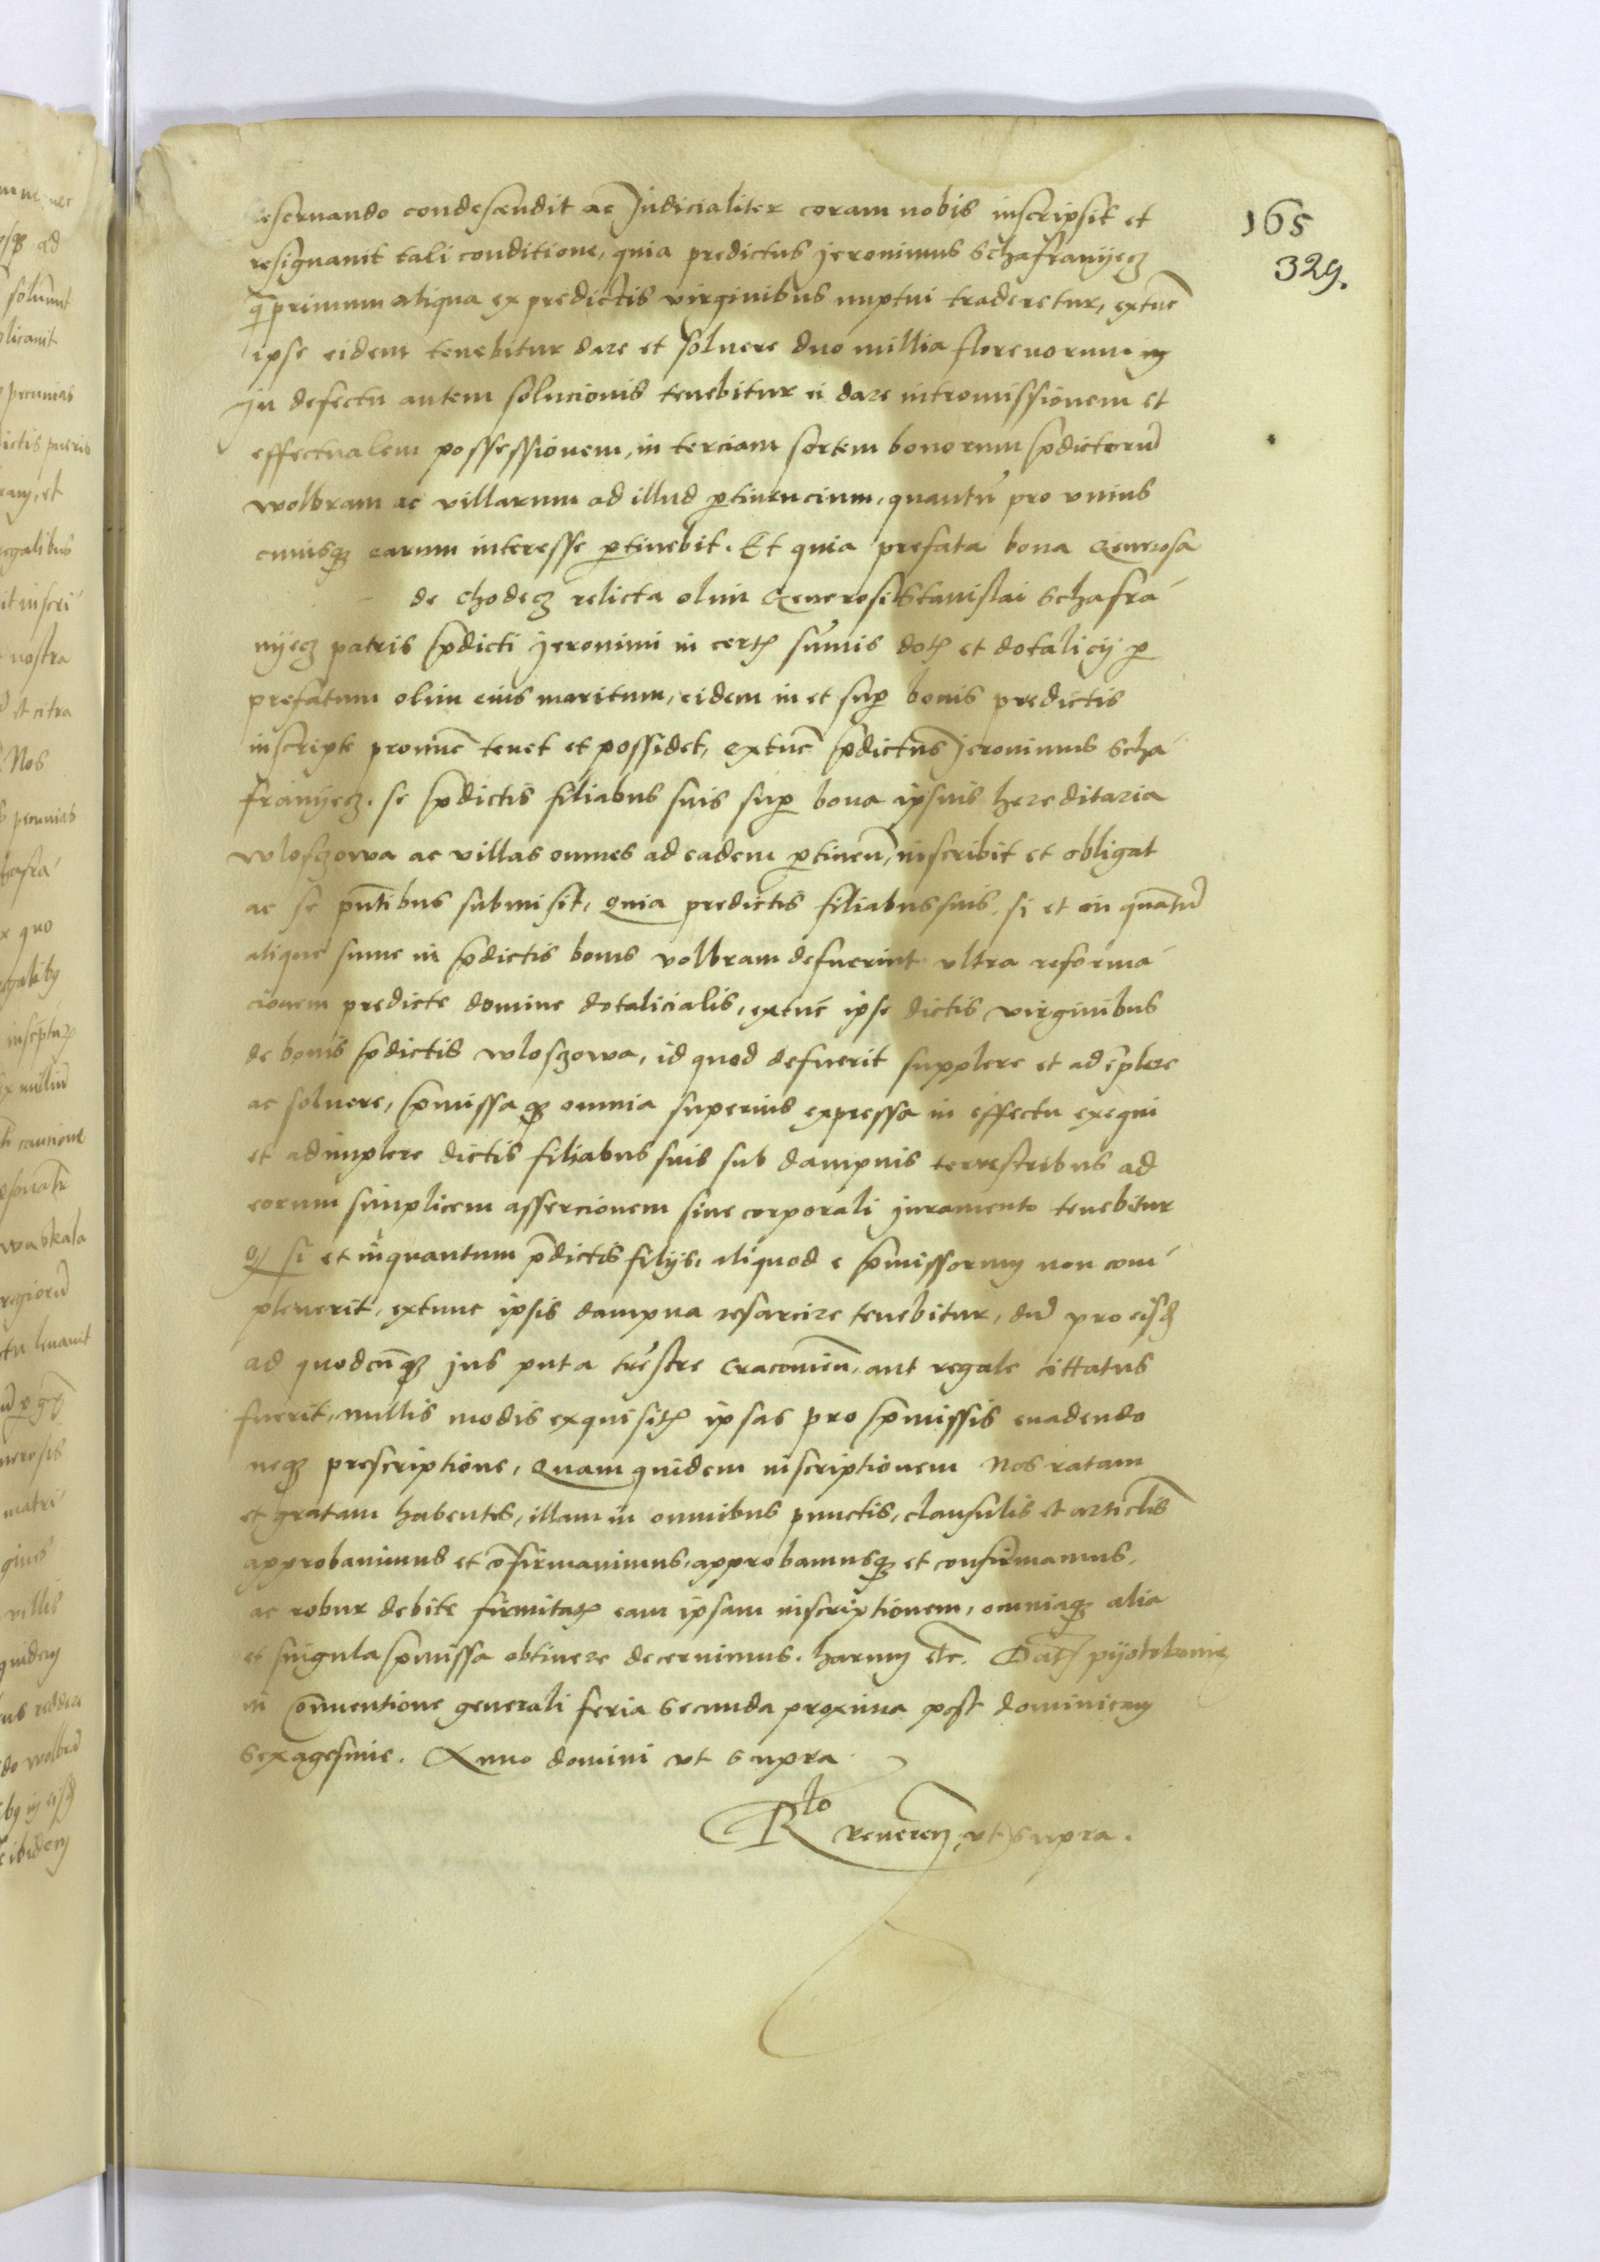 165
329.
reservando condescendit ac Judicialiter coram nobis inscripsit et
resignavit tali conditione, quia predictus Jeronimus Schafranyecz
q̄ primum aliqua ex predictis virginibus nuptui traderetur, extūc
ipse eidem tenebitur dare et solvere duo millia florenorum in
In defectu autem solucionis tenebitur ei dare intromissionem et
effectualem possessionem, in terciam sortem bonorum p̄dictorū
wolbram ac villarum ad illud ptinencium, quantū pro unius
cuiusq3 earum interesse ptinebit. Et quia prefata bona Generosa
de Chodecz relicta olim Generosi Stanislai Schafra-
nyecz patris p̄dicti Jeronimi in certis sūmis dotis et dotalicij p
prefatum olim eius maritum, eidem in et sup bonis predictis
inscripte pronūc tenet et possidet, extūc p̄dictus Jeronimus Scha
franyecz. se p̄dictis filiabus suis sup bona ipsius hereditaria
wloszowa ac villas omnes ad eadem ptineñ, inscribit et obligat
ac se pn̄tibus submisit, Quia predictis filiabus suis, si et in quātū
alique sume in p̄dictis bonis volbram defuerint ultra reforma-
cionem predicte domine dotalicialis, extūc ipse dictis virginibus
de bonis p̄dictis wloszowa, id quod defuerit supplere et adēplere
ac solvere, p̄missaq3 omnia superius expressa in effectu exequi
et adimplere dictis filiabus suis sub dampnis terrestribus ad
eorum simplicem assercionem sine corporali juramento tenebitur
Q si et inquantum p̄dictis filijs, aliquod e p̄missorum non com-
pleverit, extunc ipsis dampna resarcire tenebitur, dū pro eisd
ad quodcūq3 jus puta trēstre Cracovieñ, aut regale cittatus
fuerit, nullis modis exquisitis ipsas pro p̄missis evadendo
neq3 prescriptione, Quam quidem inscriptionem Nos ratam
et gratam habentes, illam in omnibus punctis, clausulis et articlis
approbavimus et cōfirmavimus, approbamusq3 et confirmamus,
ac robur debite firmitatis eam ipsam inscriptionem, omniaq3 alia
et singula p̄missa obtinere decernimus. harum etc. Dat pyotrkovie
in Conventione generali feria secunda proxima post dominicam
Sexagesime. Anno domini ut supra
Rlo Reveren ut supra.